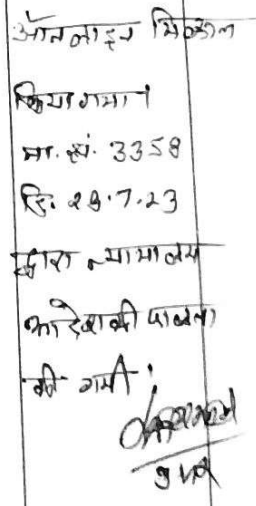 ऑनलाइन मिसल
किया गया।
मा. सं. 3358
दि. 28.7.23
द्वारा न्यायालय
आदेश की पालना
की गयी।